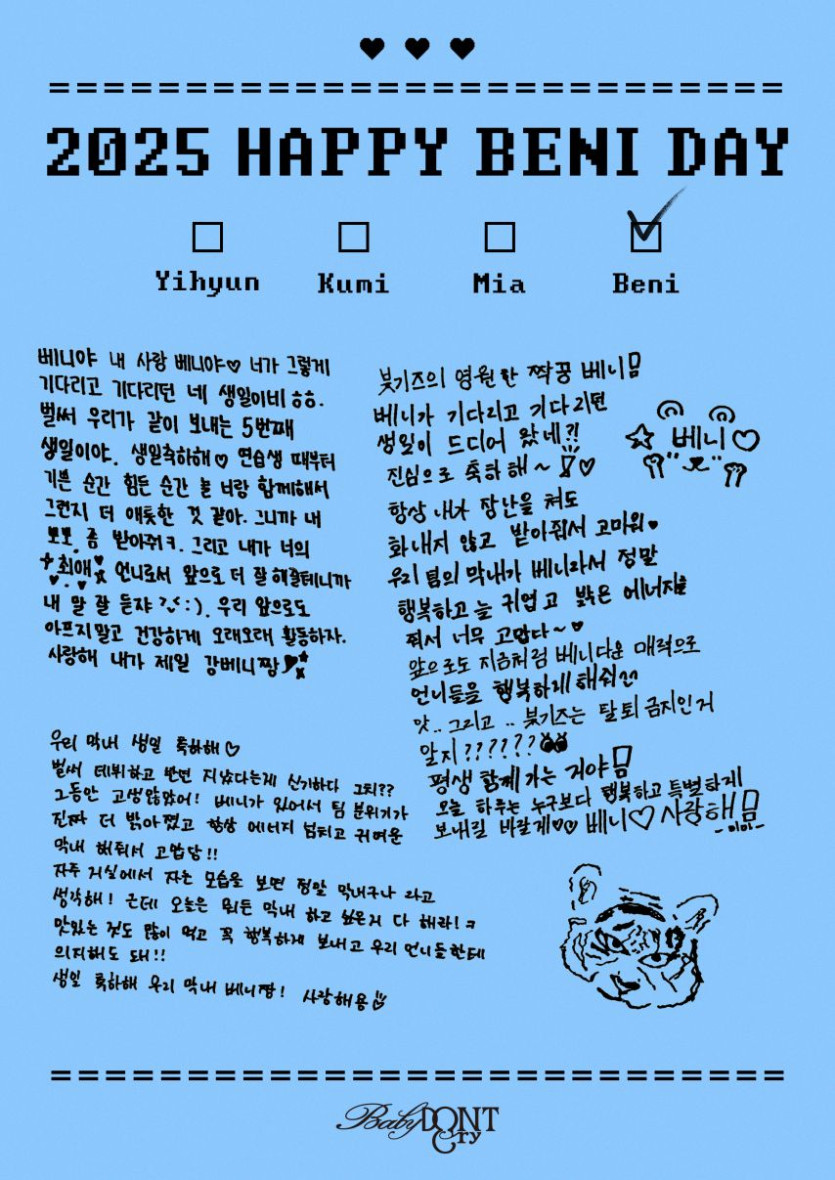 ♥ ♥ ♥
===========================
2025 HAPPY BENI DAY
Yihyun Kumi Mia Beni
베니야 내 사랑 베니야♡ 너가 그렇게
기다리고 기다리던 네 생일이비 ㅎㅎ.
벌써 우리가 같이 보내는 5번째
생일이야. 생일축하해♡ 연습생 때부터
기쁜 순간 힘든 순간 늘 너랑 함께해서
그런지 더 애틋한 것 같아. 그니까 내
뽀뽀 좀 받아줘ㅋ. 그리고 내가 너의
최애 언니로서 앞으로 더 잘해줄테니까
내 말 잘 듣쟈 :). 우리 앞으로도
아프지말고 건강하게 오래오래 활동하자.
사랑해 내가 제일 강베니짱
붖기즈의 영원한 짝꿍 베니
베니가 기다리고 기다리던
생일이 드디어 왔네?!
진심으로 축하해~ ♡
항상 내가 장난을 쳐도
화내지 않고 받아줘서 고마워♥
우리 팀의 막내가 베니라서 정말
행복하고 늘 귀엽고 밝은 에너지를
줘서 너무 고맙다~♥
앞으로도 지금처럼 베니다운 매력으로
언니들을 행복하게 해줘
맛.. 그리고 .. 붖기즈는 탈퇴 금지인거
알지??????
평생 함께 가는 거야
오늘 하루는 누구보다 행복하고 특별하게
보내길 바랄게♡♡ 베니♡ 사랑해
-미아-
☆ 베니♡
우리 막내 생일 축하해♡
벌써 데뷔하고 반년 지났다는게 신기하다 그치??
그동안 고생많았어! 베니가 있어서 팀 분위기가
진짜 더 밝아졌고 항상 에너지 넘치고 귀여운
막내 해줘서 고맙당!!
자주 거실에서 자는 모습을 보면 정말 막내구나 라고
생각해! 근데 오늘은 뭐든 막내 하고 싶은거 다 해라!ㅋ
맛있는 것도 많이 먹고 꼭 행복하게 보내고 우리 언니들한테
의지해도 돼!!
생일 축하해 우리 막내 베니짱! 사랑해용
===========================
Baby DONT Cry